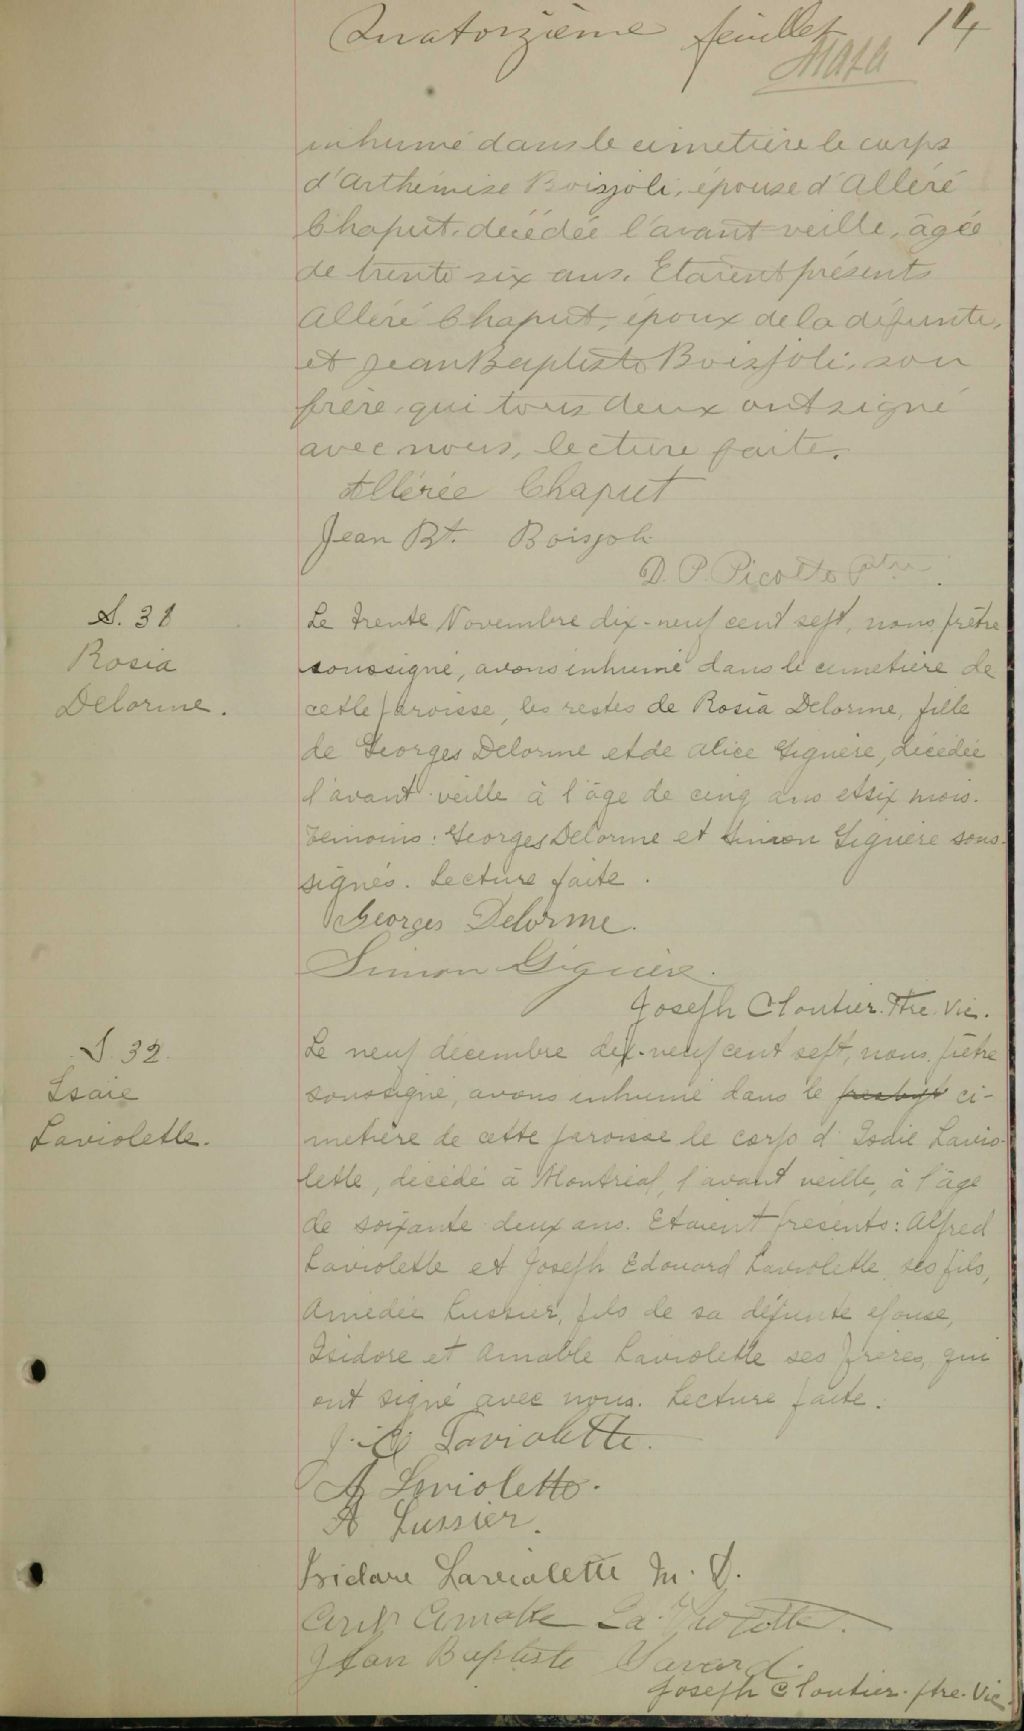 Quatorzième feuillet 14
inhumé dans le cimetière le corps
d'Arthémise Boisjoli, épouse d'Alléré
Chaput, décédée l'avant veille, âgée
de trente six ans. Etaient présents
Alléré Chaput, époux de la défunte,
et Jean Baptiste Boisjoli, son
frère, qui tous deux ont signé
avec nous, lecture faite.
Allérée Chaput
Jean Bt. Boisjoli
D. P. Picotte Ptre.
S. 31
Rosia
Delorme.
Le trente Novembre dix-neuf cent sept, nous prêtre
soussigné, avons inhumé dans le cimetière de
cette paroisse, les restes de Rosia Delorme, fille
de Georges Delorme et de Alice Giguère, décédée
l'avant veille à l'âge de cinq ans et six mois.
Témoins: Georges Delorme et Simon Giguère sous-
signés. Lecture faite.
Georges Delorme.
Simon Giguère.
Joseph Cloutier. Ptre. Vic.
S. 32.
Isaïe
Laviolette.
Le neuf décembre dix-neuf cent sept, nous, prêtre
soussigné, avons inhumé dans le presbyt ci-
metière de cette paroisse le corps d'Isaïe Lavio-
lette, décédé à Montréal, l'avant veille, à l'âge
de soixante deux ans. Etaient présents: Alfred
Laviolette et Joseph Edouard Laviolette, ses fils,
Amédée Lussier, fils de sa défunte épouse,
Isidore et Amable Laviolette ses frères, qui
ont signé avec nous. Lecture faite.
J. E. Laviolette.
A Laviolette.
A Lussier.
Isidore Laviolette M. D.
Amable La Violette.
Jean Baptiste Savard.
Joseph Cloutier. ptre. Vic.